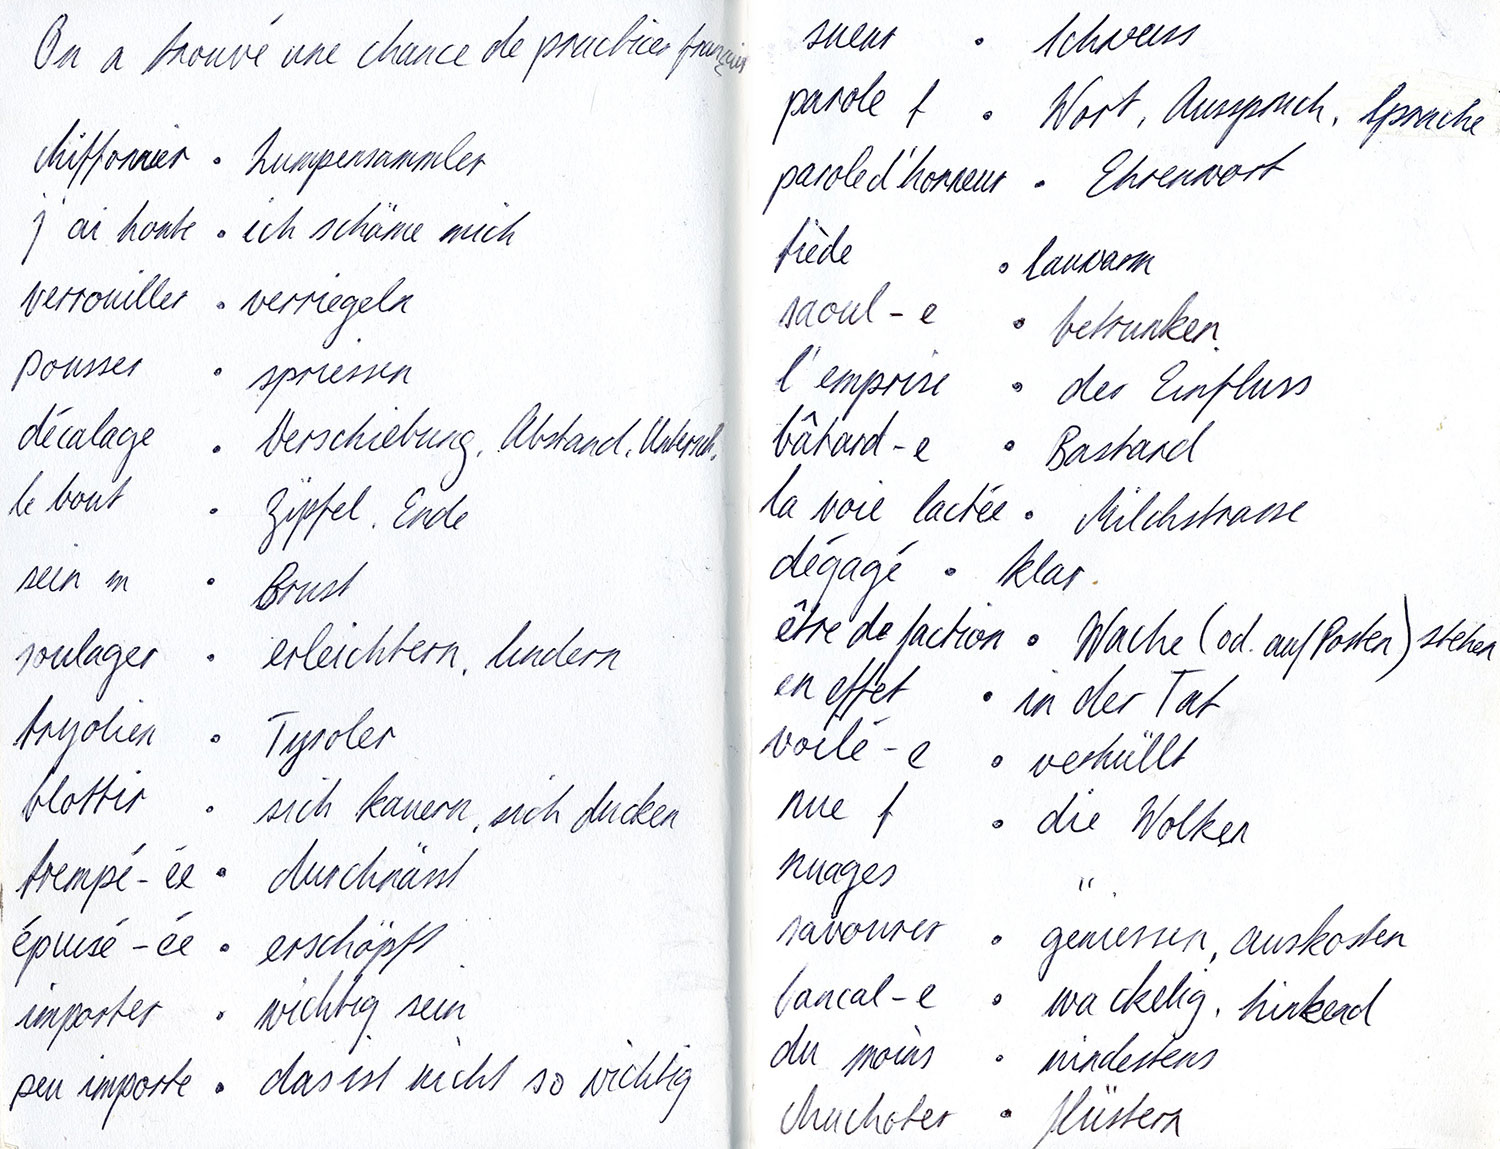 On a trouvé une chance de practicer français
chiffonnier • Lumpensammler
j'ai honte • ich schäme mich
verrouiller • verriegeln
pousser • spriessen
décalage • Verschiebung, Abstand, Untersch.
le bout • Zipfel, Ende
sein m • Brust
soulager • erleichtern, lindern
tryolien • Tyroler
blottir • sich kauern, sich ducken
trempé-ée • durchnässt
épuisé-ée • erschöpft
importer • wichtig sein
peu importe • das ist nicht so wichtig
sueur • Schweiss
parole f • Wort, Ausspruch, Sprache
parole d'honneur • Ehrenwort
tiède • lauwarm
saoul-e • betrunken
l'emprise • der Einfluss
bâtard-e • Bastard
la voie lactée • Milchstrasse
dégagé • klar
être de faction • Wache (od. auf Posten) stehen
en effet • in der Tat
voilé-e • verhüllt
nue f • die Wolken
nuages "
savourer • geniessen, auskosten
bancal-e • wackelig, hinkend
du moins • mindestens
chuchoter • flüstern